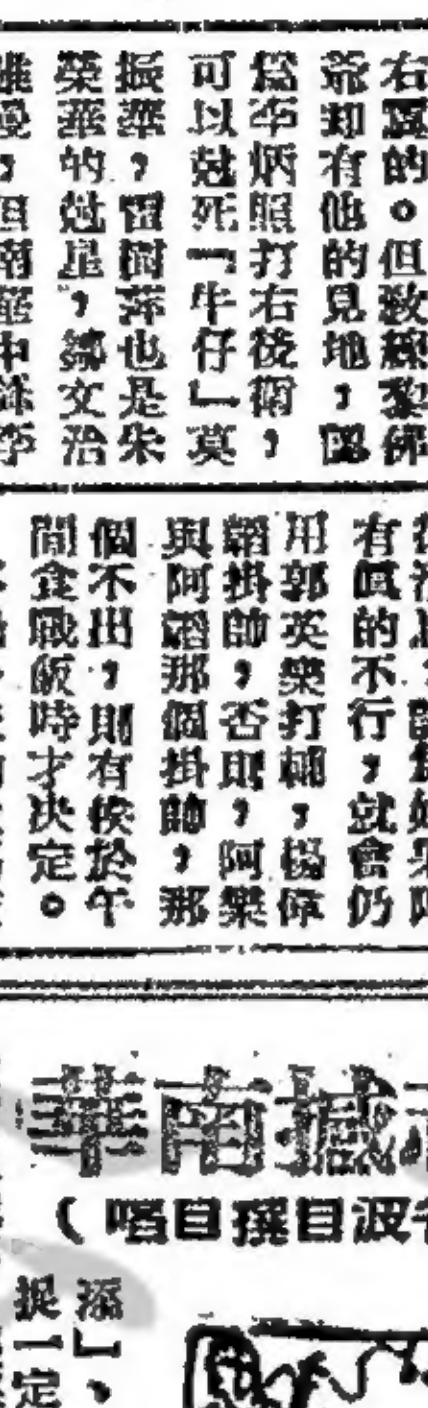 右翼的。但教練黎佛
爺却有他的見地,認
爲李炳照打右後衛,
可以尅死「牛仔」莫
振華,雷樹萍也是朱
榮華的尅星,鄒文治
有眞的不行,就會仍
用郭英樂打輔,楊偉
韜掛帥,否則,阿樂
與阿韜那個掛帥,那
個不出,則有俟於午
間食戰飯時才决定。
華南撼
添」、
捉一定